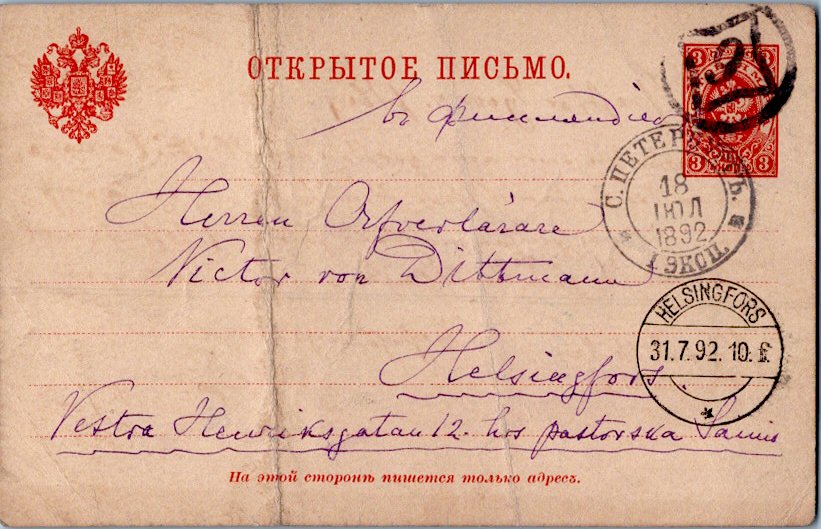 ОТКРЫТОЕ ПИСЬМО.
3 3
3 3
въ Финляндію
С. ПЕТЕРБУРГЪ.
18
ІЮЛ
1892
1 ЭКСП.
Herren Öfverlärare
Victor von Dittmann
HELSINGFORS
31.7.92. 10.
Helsingfors.
Vestra Henriksgatan 12. hos pastorska
На этой сторонѣ пишется только адресъ.